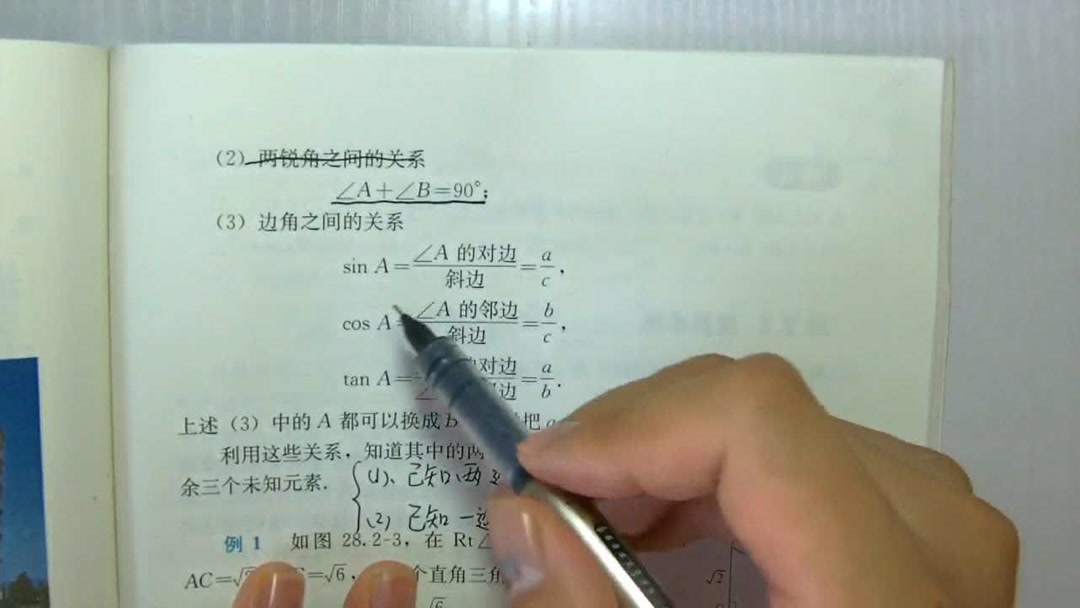 (2) 两锐角之间的关系
∠A+∠B=90°;
(3) 边角之间的关系
sin A=∠A 的对边/斜边=a/c,
cos A=∠A 的邻边/斜边=b/c,
tan A= 对边/ 边=a/b.
上述 (3) 中的 A 都可以换成 B 把 a
利用这些关系,知道其中的两
余三个未知元素.
(1)、已知两
(2) 已知一边
例 1 如图 28.2-3,在 Rt∠
AC=√ =√6, 个直角三角
√6
√2